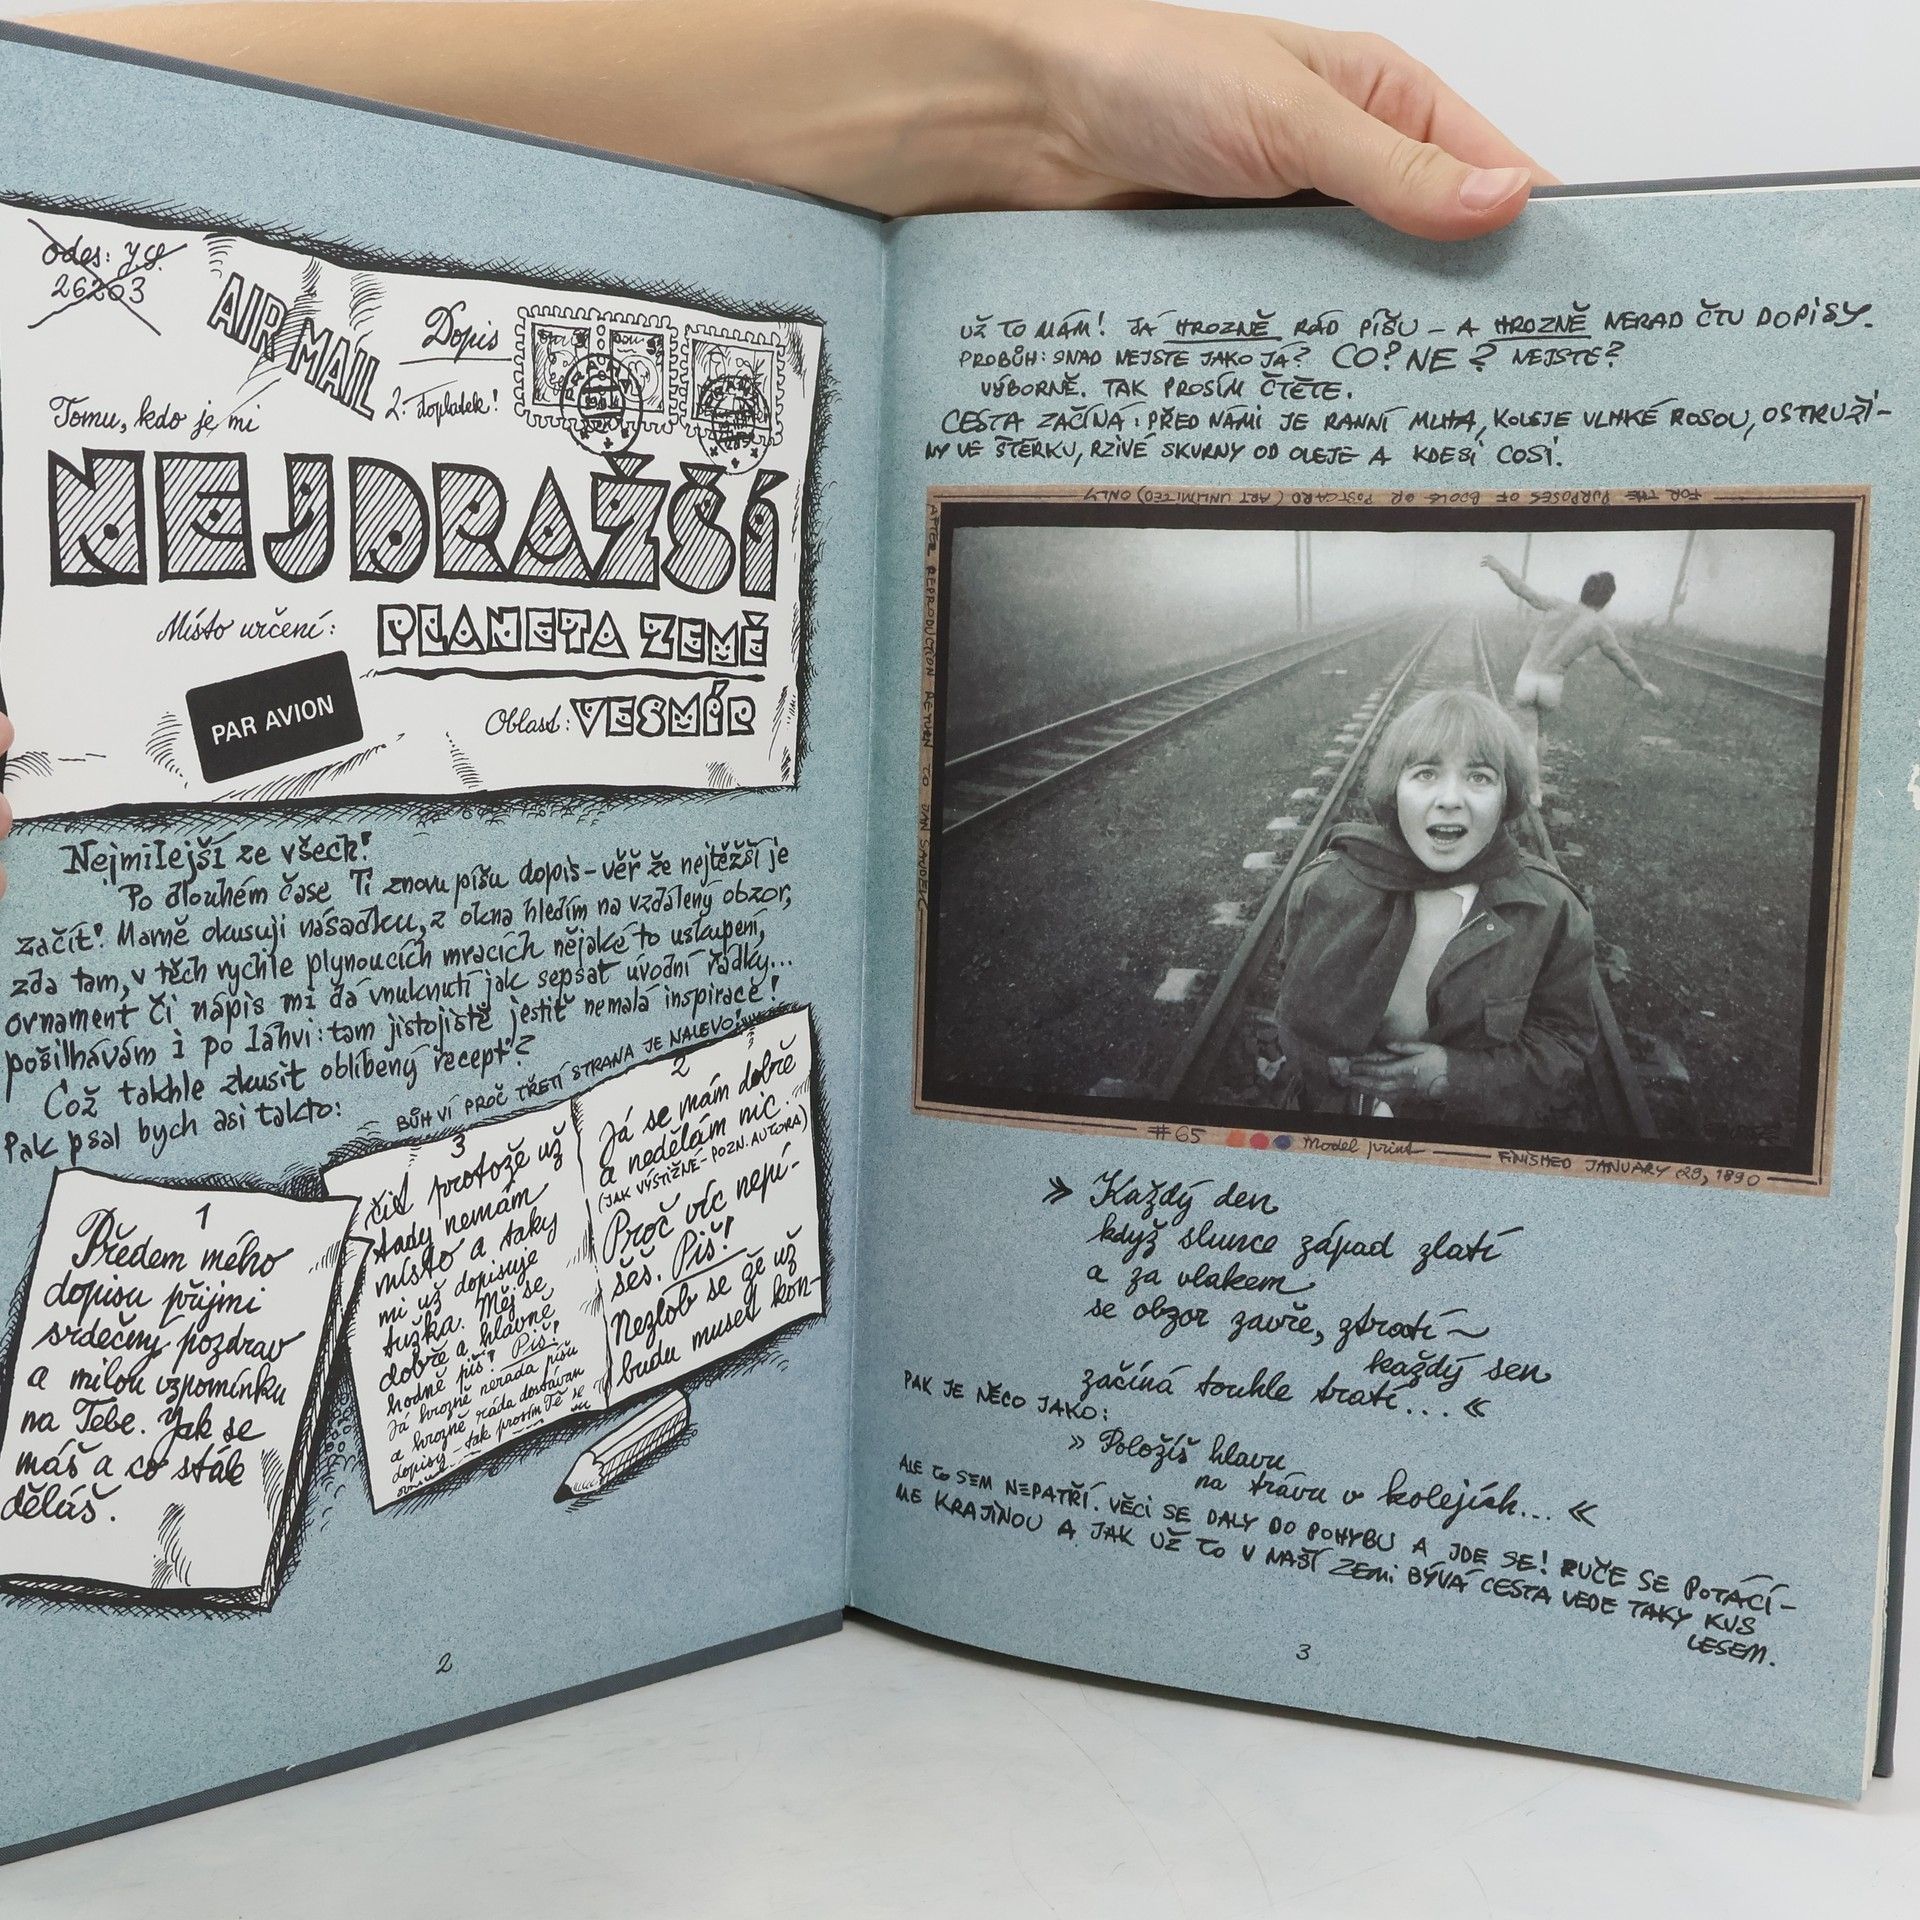 odes: J.S.
26203
AIR MAIL
Dopis
2. dopladek!
Tomu, kdo je mi
NEJDRAŽŠÍ
Místo určení:
PLANETA ZEMĚ
PAR AVION
Oblast: VESMÍR
Nejmilejší ze všech!
Po dlouhém čase Ti znovu píšu dopis – věř že nejtěžší je
začít! Marně okusuji násadku, z okna hledím na vzdálený obzor,
zda tam, v těch rychle plynoucích mracích nějaké to uskupení,
ornament či nápis mi dá vnuknutí jak sepsat úvodní řádky...
pošilhávám i po láhvi: tam jistojistě jestiť nemalá inspirace!
Což takhle zkusit oblíbený recept?
Pak psal bych asi takto:
BŮH VÍ PROČ TŘETÍ STRANA JE NALEVO!
1
Předem mého
dopisu přijmi
srdečný pozdrav
a milou vzpomínku
na Tebe. Jak se
máš a co stále
děláš.
2
Já se mám dobře
a nedělám nic.
(JAK VÝSTIŽNÉ – POZN. AUTORA)
Proč víc nepí-
šeš. Piš!
Nezlob se že už
budu muset kon-
3
čit protože už
tady nemám
místo a taky
mi už dopisuje
tužka. Měj se
dobře a hlavně
hodně piš! Piš!
Já hrozně nerada píšu
a hrozně ráda dostávám
dopisy – tak prosím Tě se
2
UŽ TO MÁM! JÁ HROZNĚ RÁD PÍŠU – A HROZNĚ NERAD ČTU DOPISY.
PROBŮH: SNAD NEJSTE JAKO JÁ? CO? NE? NEJSTE?
VÝBORNĚ. TAK PROSÍM ČTĚTE.
CESTA ZAČÍNÁ: PŘED NÁMI JE RANNÍ MLHA, KOLEJE VLHKÉ ROSOU, OSTRUŽI-
NY VE ŠTĚRKU, RZIVÉ SKVRNY OD OLEJE A KDESI COSI.
FOR THE PURPOSES OF BOOKS OR POSTCARD (ART UNLIMITED) ONLY
AFTER REPRODUCTION RETURN TO JAN SAUDEK
#65 model print FINISHED JANUARY 29, 1890
» Každý den
když slunce západ zlatí
a za vlakem
se obzor zavře, ztratí –
každý sen
začíná touhle tratí... «
PAK JE NĚCO JAKO:
» Položíš hlavu
na trávu v kolejích... «
ALE TO SEM NEPATŘÍ. VĚCI SE DALY DO POHYBU A JDE SE! RUČE SE POTÁCÍ-
ME KRAJINOU A JAK UŽ TO V NAŠÍ ZEMI BÝVÁ CESTA VEDE TAKY KUS
LESEM.
3